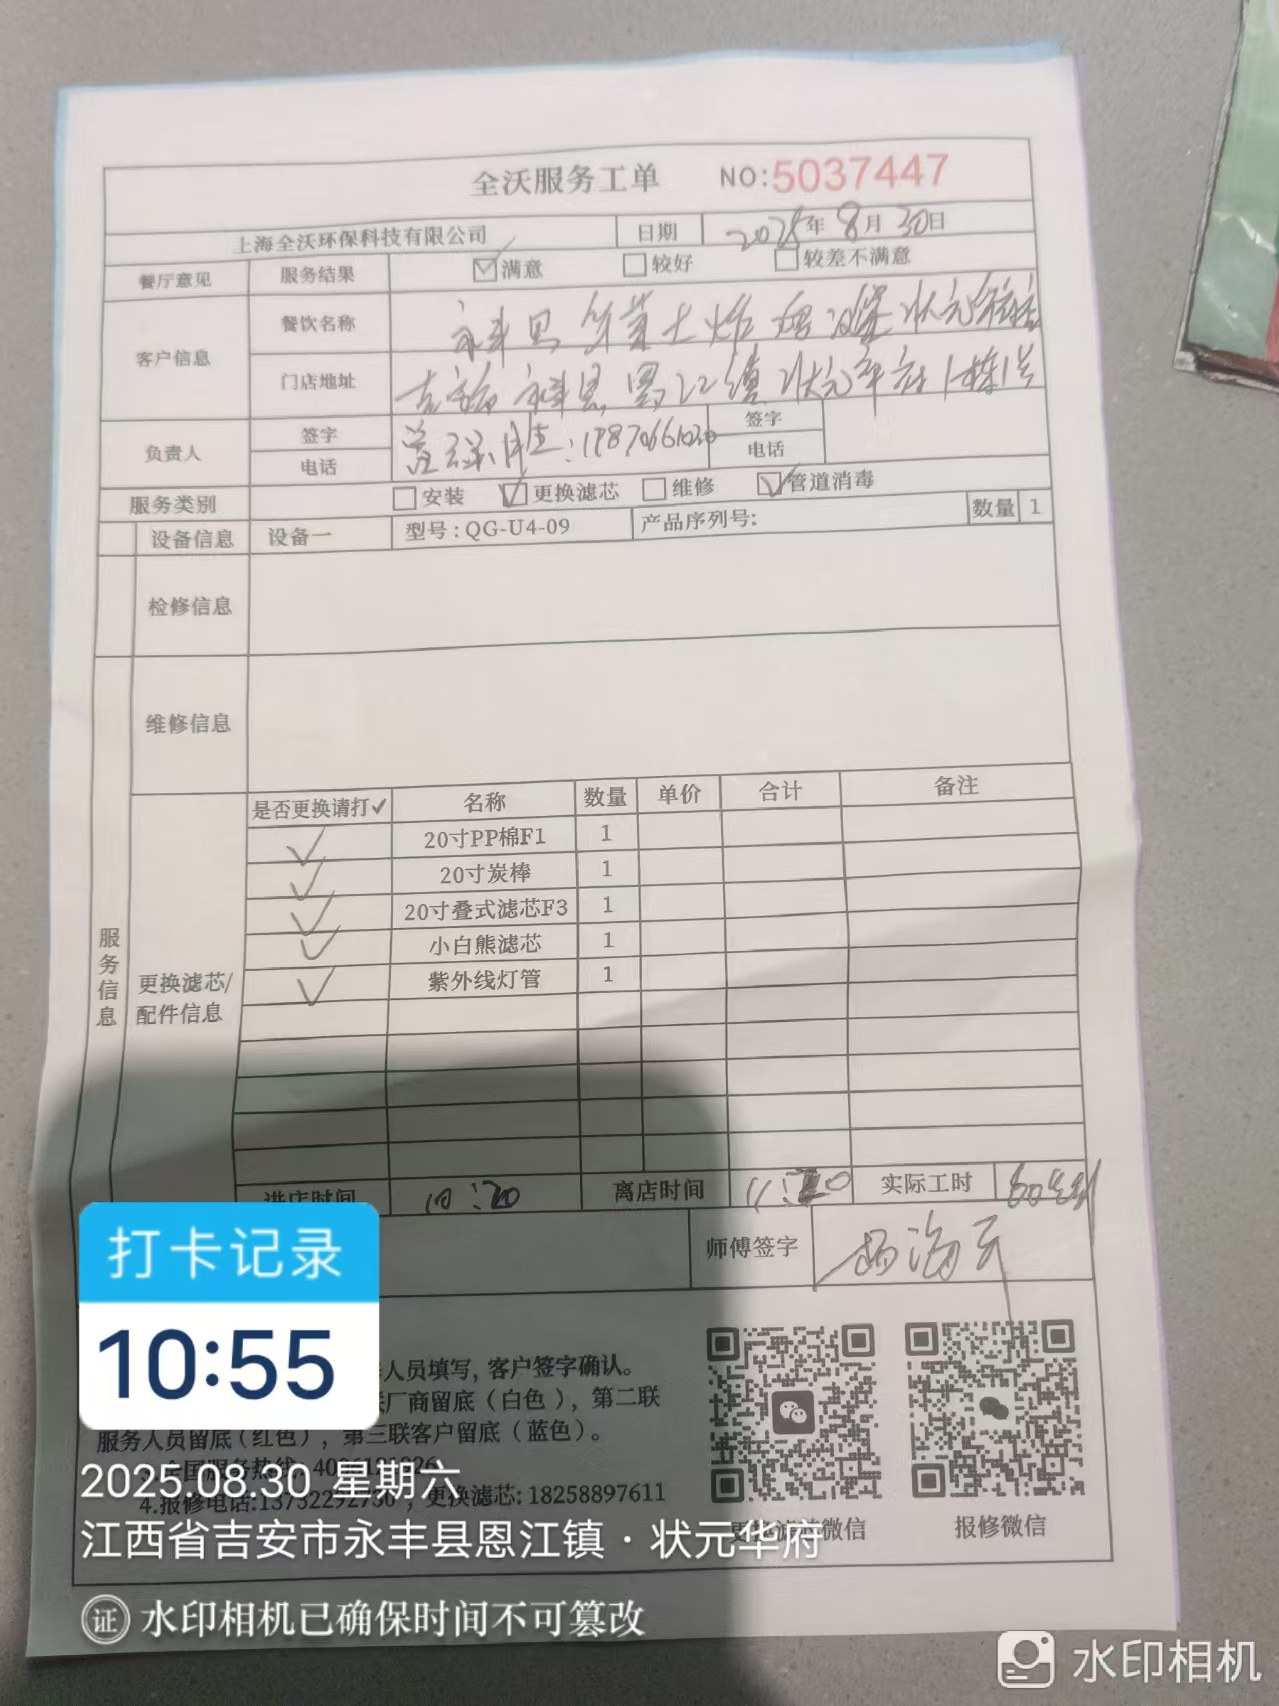 全沃服务工单 NO:5037447
上海全沃环保科技有限公司 日期 2025年8月30日
餐厅意见 服务结果 ☑满意 □较好 □较差不满意
客户信息 餐饮名称 永丰县 炸 汉堡状元
门店地址 吉安 永丰县 恩江镇 状元 1栋1号
负责人 签字 签字
电话 电话
服务类别 □安装 ☑更换滤芯 □维修 ☑管道消毒
设备信息 设备一 型号:QG-U4-09 产品序列号: 数量 1
检修信息
维修信息
服务信息
更换滤芯/
配件信息
是否更换请打✓ 名称 数量 单价 合计 备注
✓ 20寸PP棉F1 1
✓ 20寸炭棒 1
✓ 20寸叠式滤芯F3 1
✓ 小白熊滤芯 1
✓ 紫外线灯管 1
进店时间 10:20 离店时间 11:20 实际工时 60分钟
师傅签字
打卡记录
10:55
人员填写,客户签字确认。
厂商留底(白色),第二联
服务人员留底(红色),第三联客户留底(蓝色)。
4.报修电话:13732292736,更换滤芯:18258897611
2025.08.30 星期六
江西省吉安市永丰县恩江镇·状元华府
微信 报修微信
证 水印相机已确保时间不可篡改
水印相机